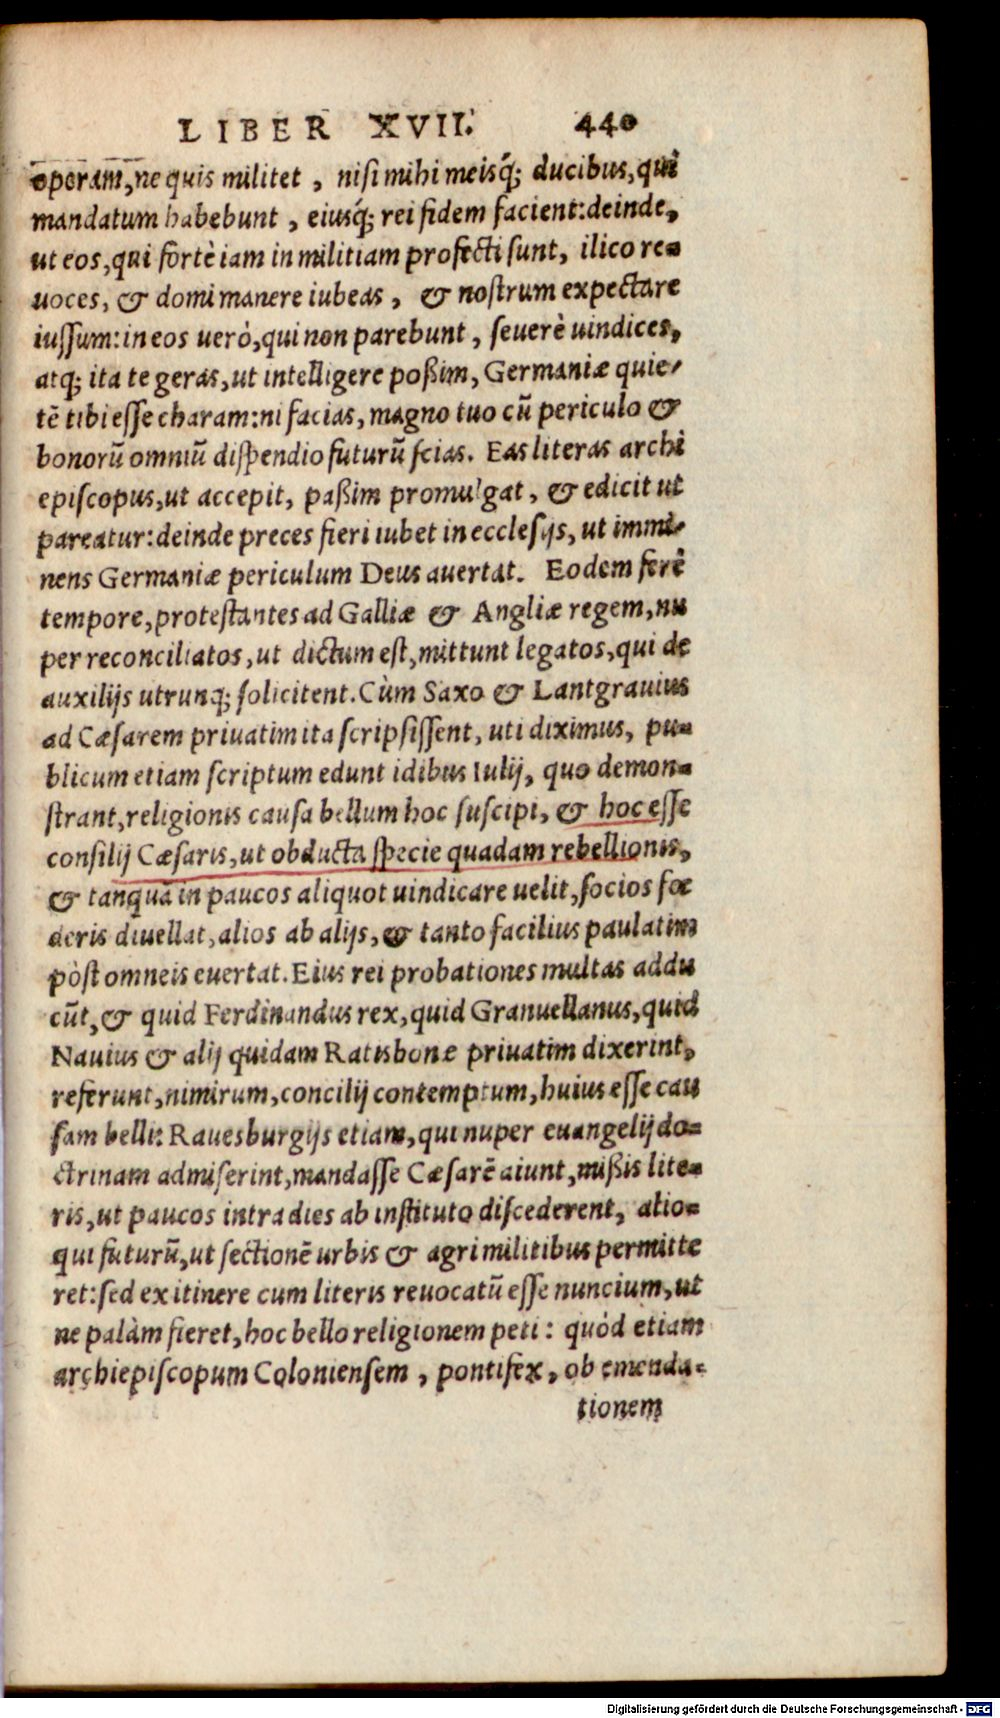 LIBER XVII. 440
operam, ne quis militet, nisi mihi meisq́; ducibus, qui
mandatum habebunt, eiusq́; rei fidem facient: deinde,
ut eos, qui fortè iam in militiam profecti sunt, ilico re-
uoces, & domi manere iubeas, & nostrum expectare
iussum: in eos uerò, qui non parebunt, seuerè uindices,
atq; ita te geras, ut intelligere poßim, Germaniæ quie-
tẽ tibi esse charam: ni facias, magno tuo cũ periculo &
bonorũ omniũ dispendio futurũ scias. Eas literas archi
episcopus, ut accepit, paßim promulgat, & edicit ut
pareatur: deinde preces fieri iubet in ecclesijs, ut immi-
nens Germaniæ periculum Deus auertat. Eodem ferè
tempore, protestantes ad Galliæ & Angliæ regem, nu
per reconciliatos, ut dictum est, mittunt legatos, qui de
auxilijs utrunq; solicitent. Cùm Saxo & Lantgrauius
ad Cæsarem priuatim ita scripsissent, uti diximus, pu-
blicum etiam scriptum edunt idibus Iulij, quo demon-
strant, religionis causa bellum hoc suscipi, & hoc esse
consilij Cæsaris, ut obducta specie quadam rebellionis,
& tanquã in paucos aliquot uindicare uelit, socios fœ
deris diuellat, alios ab alijs, & tanto facilius paulatim
pòst omneis euertat. Eius rei probationes multas addu
cũt, & quid Ferdinandus rex, quid Granuellanus, quid
Nauius & alij quidam Ratisbonæ priuatim dixerint,
referunt, nimirum, concilij contemptum, huius esse cau
sam belli: Rauesburgijs etiam, qui nuper euangelij do-
ctrinam admiserint, mandasse Cæsarẽ aiunt, mißis lite-
ris, ut paucos intra dies ab instituto discederent, alio-
qui futurũ, ut sectionẽ urbis & agri militibus permitte
ret: sed ex itinere cum literis reuocatũ esse nuncium, ut
ne palàm fieret, hoc bello religionem peti: quòd etiam
archiepiscopum Coloniensem, pontifex, ob emenda-
tionem
Digitalisierung gefördert durch die Deutsche Forschungsgemeinschaft - DFG